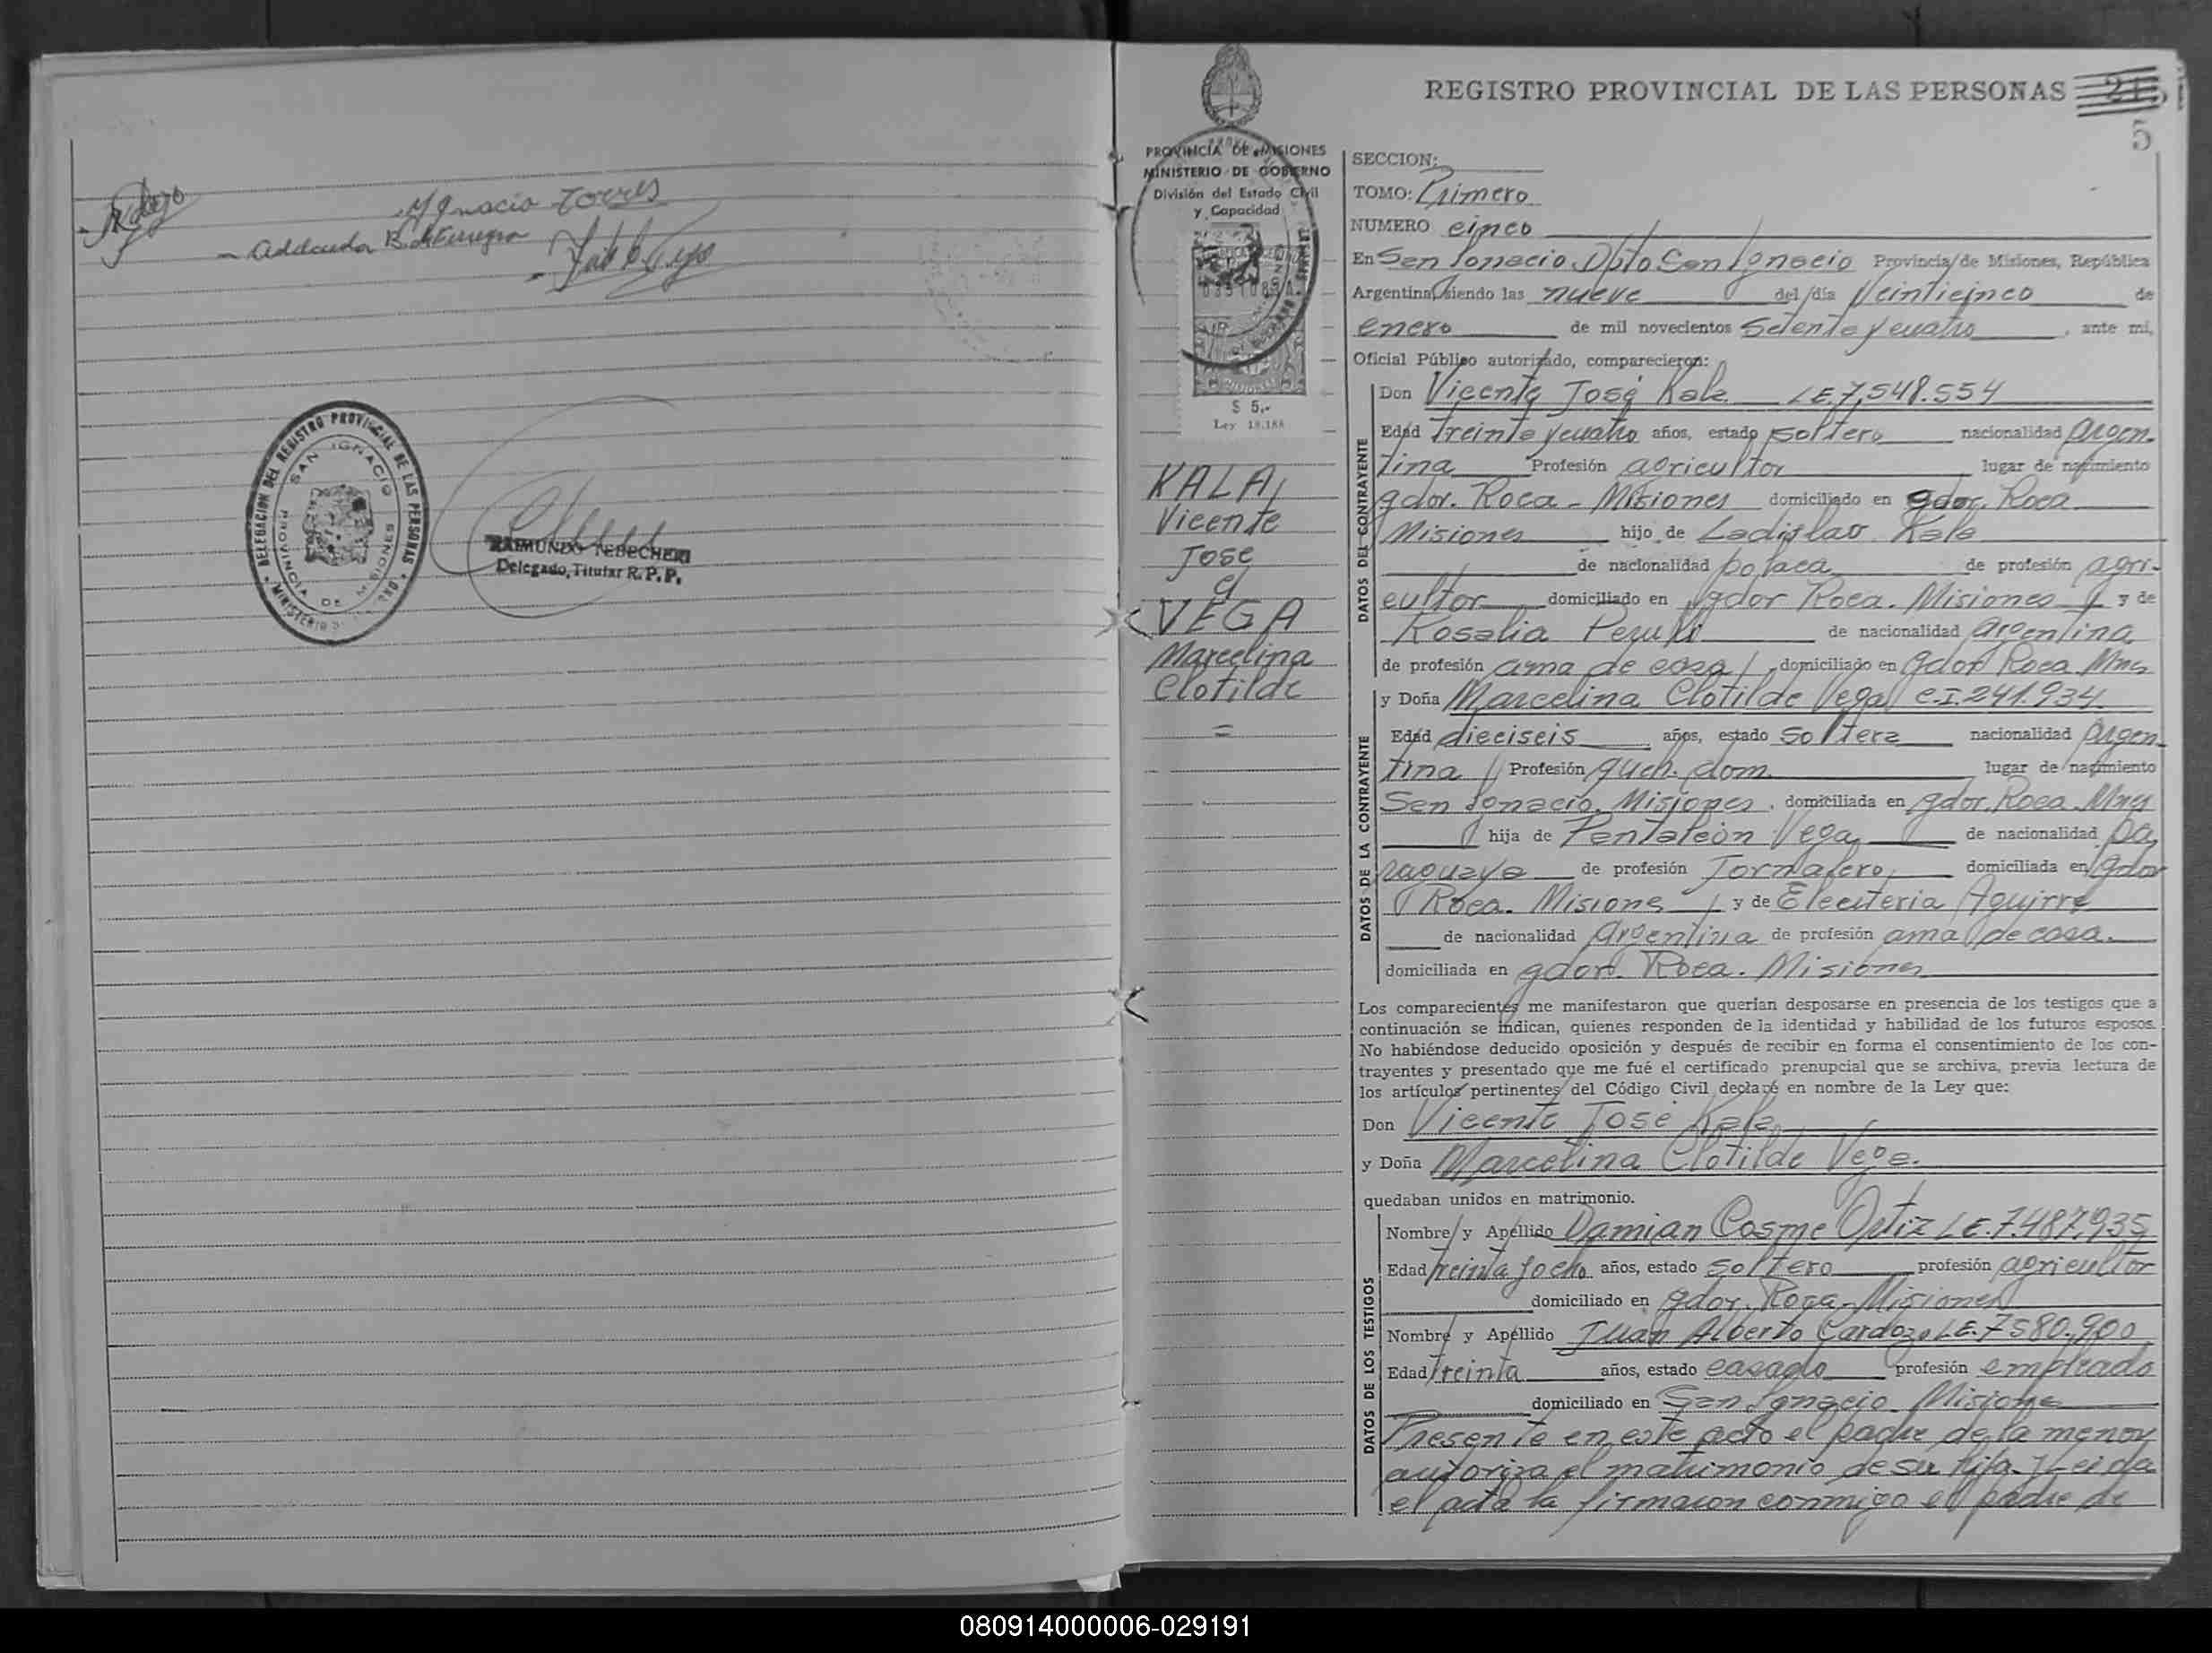 Ygnacio Torres
REGISTRO PROVINCIAL DE LAS PERSONAS
5
PROVINCIA DE MISIONES
MINISTERIO DE GOBIERNO
División del Estado Civil
y Capacidad
$ 5,-
Ley 18.188
KALA,
Vicente
Jose
VEGA
Marcelina
Clotilde
=
DELEGACION DEL REGISTRO PROVINCIAL DE LAS PERSONAS
SAN IGNACIO
PROVINCIA DE MISIONES
RAIMUNDO TEDECHERI
Delegado Titular R.P.P.
SECCION:
TOMO: Primero
NUMERO cinco
En San Ignacio Dpto San Ignacio Provincia de Misiones, República
Argentina, siendo las nueve del día Veinticinco de
enero de mil novecientos Setenta y cuatro, ante mi,
Oficial Público autorizado, comparecieron:
DATOS DEL CONTRAYENTE
Don Vicente José Kala LE.7.548.554
Edad treinta y cuatro años, estado soltero nacionalidad argen-
tina Profesión agricultor lugar de nacimiento
gdor. Roca - Misiones domiciliado en gdor. Roca
Misiones hijo de Ladislao Kala
de nacionalidad polaca de profesión agri-
cultor domiciliado en gdor Roca. Misiones y de
Rosalia de nacionalidad argentina
de profesión ama de casa domiciliado en gdor Roca Mnes
DATOS DE LA CONTRAYENTE
y Doña Marcelina Clotilde Vega C.I.241.934.
Edad dieciseis años, estado soltera nacionalidad Argen-
tina Profesión queh. dom. lugar de nacimiento
San Ignacio, Misiones, domiciliada en gdor. Roca Mnes
hija de Pantaleón Vega de nacionalidad pa
raguaya de profesión Jornalero domiciliada en gdor
Roca. Misiones y de Eleuteria Aguirre
de nacionalidad argentina de profesión ama de casa.
domiciliada en gdor. Roca. Misiones
Los comparecientes me manifestaron que querían desposarse en presencia de los testigos que a
continuación se indican, quienes responden de la identidad y habilidad de los futuros esposos.
No habiéndose deducido oposición y después de recibir en forma el consentimiento de los con-
trayentes y presentado que me fué el certificado prenupcial que se archiva, previa lectura de
los artículos pertinentes del Código Civil declaré en nombre de la Ley que:
Don Vicente José Kala
y Doña Marcelina Clotilde Vega.
quedaban unidos en matrimonio.
DATOS DE LOS TESTIGOS
Nombre y Apellido Damian Cosme Ortiz LE.7.487.935
Edad treinta y ocho años, estado soltero profesión agricultor
domiciliado en gdor. Roca - Misiones
Nombre y Apellido Juan Alberto Cardozo LE.7580.900
Edad treinta años, estado casado profesión empleado
domiciliado en San Ignacio - Misiones
Presente en este acto el padre de la menor
autoriza el matrimonio de su hija. Leida
el acta la firmaron conmigo el padre de
080914000006-029191